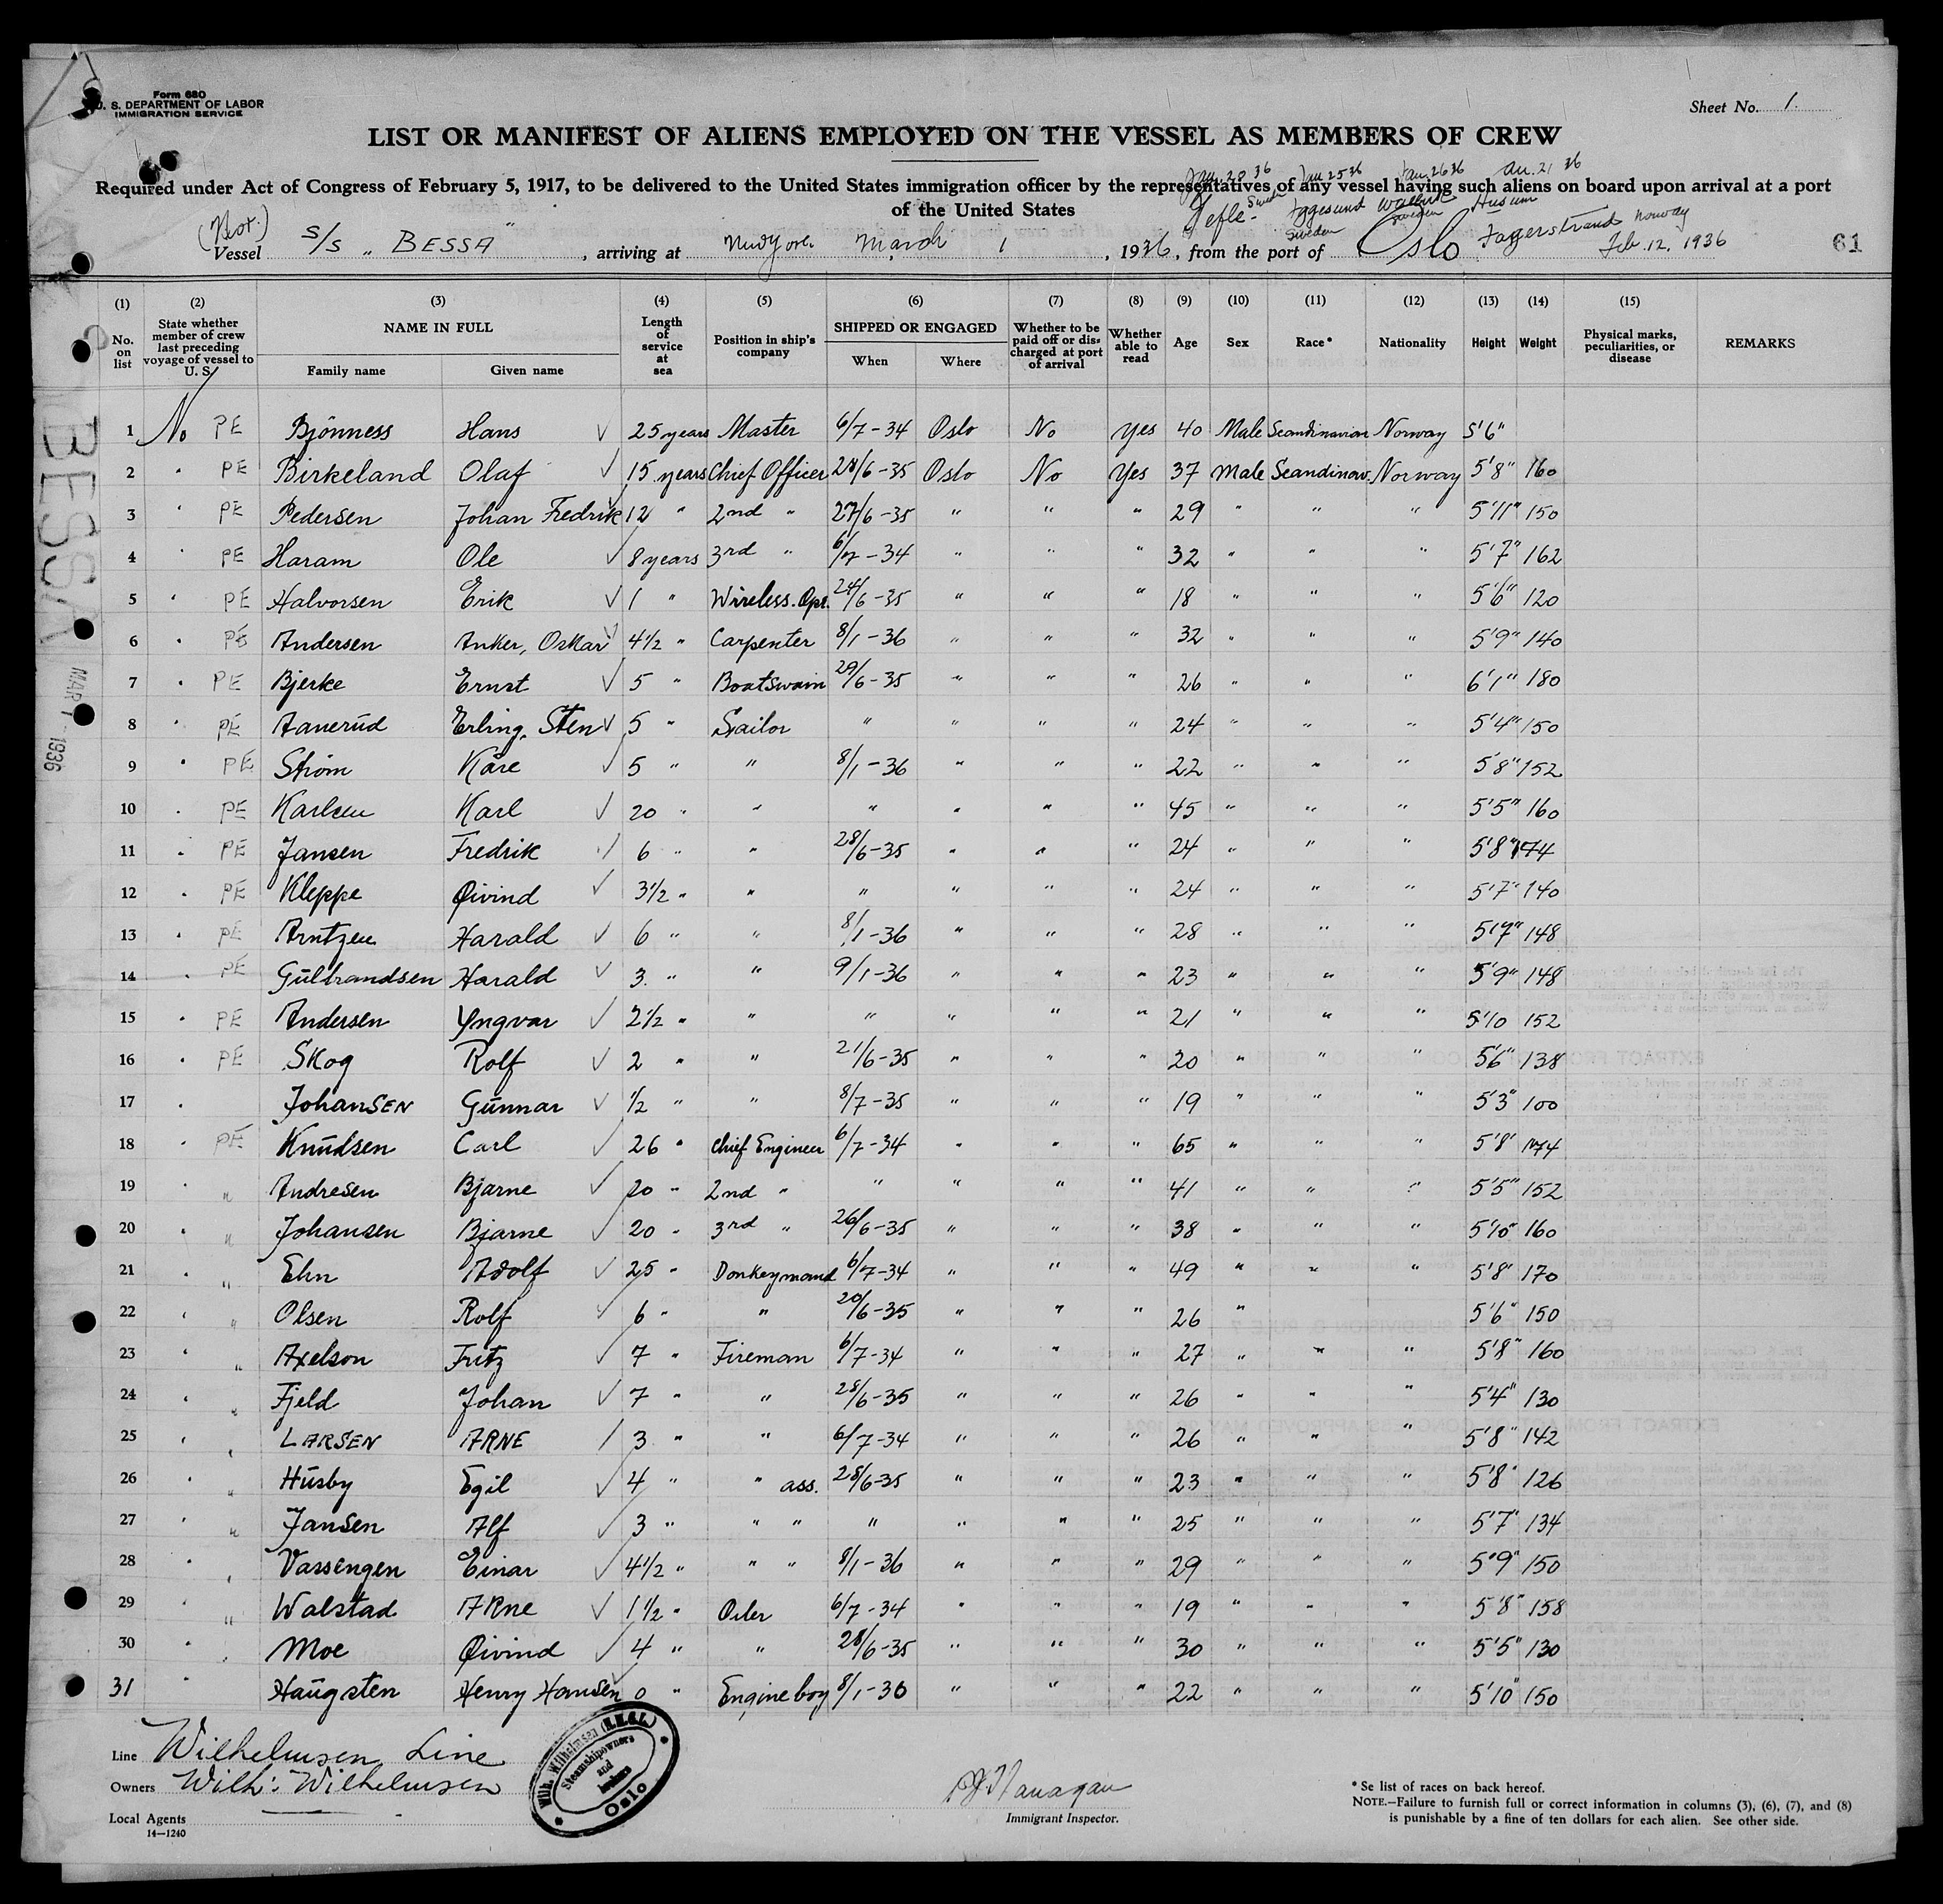 Form 680
U. S. DEPARTMENT OF LABOR
IMMIGRATION SERVICE
Sheet No. 1.
LIST OR MANIFEST OF ALIENS EMPLOYED ON THE VESSEL AS MEMBERS OF CREW
Jan. 20 36 Jan 25 36 Jan. 26 36 an. 21 36
Required under Act of Congress of February 5, 1917, to be delivered to the United States immigration officer by the representatives of any vessel having such aliens on board upon arrival at a port
of the United States
Gefle - Sweden Iggesund Sweden Sweden Husum
Vessel S/S „ BESSA " , arriving at New York March 1 , 1936, from the port of Oslo Fagerstrand Norway Feb. 12. 1936
61
(1) (2) (3) (4) (5) (6) (7) (8) (9) (10) (11) (12) (13) (14) (15)
No. on list State whether member of crew last preceding voyage of vessel to U. S. NAME IN FULL Family name Given name Length of service at sea Position in ship's company SHIPPED OR ENGAGED When Where Whether to be paid off or discharged at port of arrival Whether able to read Age Sex Race* Nationality Height Weight Physical marks, peculiarities, or disease REMARKS
1 No PE Bjönness Hans √ 25 years Master 6/7-34 Oslo No Yes 40 Male Scandinavian Norway 5'6"
2 " PE Birkeland Olaf √ 15 years Chief Officer 28/6-35 Oslo No Yes 37 Male Scandinav. Norway 5'8" 160
3 " PE Pedersen Johan Fredrik √ 12 " 2nd " 27/6-35 " " " 29 " " " 5'11" 150
4 " PE Haram Ole √ 8 years 3rd " 6/7-34 " " " 32 " " " 5'7" 162
5 " PE Halvorsen Erik √ 1 " Wireless. Opr. 24/6-35 " " " 18 " " " 5'6" 120
6 " PE Andersen Anker, Oskar √ 4½ " Carpenter 8/1-36 " " " 32 " " " 5'9" 140
7 " PE Bjerke Ernst √ 5 " Boatswain 29/6-35 " " " 26 " " " 6'1" 180
8 " PE Aanerud Erling, Sten √ 5 " Sailor " " " " 24 " " " 5'4" 150
9 " PE Ström Kåre √ 5 " " 8/1-36 " " " 22 " " " 5'8" 152
10 " PE Karlsen Karl √ 20 " " " " " " 45 " " " 5'5" 160
11 " PE Jansen Fredrik √ 6 " " 28/6-35 " " " 24 " " " 5'8" 174
12 " PE Kleppe Øivind √ 3½ " " " " " " 24 " " " 5'7" 140
13 " PE Arntzen Harald √ 6 " " 8/1-36 " " " 28 " " " 5'7" 148
14 " PE Gulbrandsen Harald √ 3. " " 9/1-36 " " " 23 " " " 5'9" 148
15 " PE Andersen Yngvar √ 2½ " " " " " " 21 " " " 5'10 152
16 " PE Skog Rolf √ 2 " " 21/6-35 " " " 20 " " " 5'6" 138
17 " Johansen Gunnar √ ½ " " 8/7-35 " " " 19 " " " 5'3" 100
18 " PE Knudsen Carl √ 26 " Chief Engineer 6/7-34 " " " 65 " " " 5'8' 174
19 " " Andresen Bjarne √ 20 " 2nd " " " " " 41 " " " 5'5" 152
20 " " Johansen Bjarne √ 20 " 3rd " 26/6-35 " " " 38 " " " 5'10" 160
21 " " Ehn Adolf √ 25 " Donkeymand 6/7-34 " " " 49 " " " 5'8" 170
22 " " Olsen Rolf √ 6 " " 20/6-35 " " " 26 " 5'6" 150
23 " " Axelson Fritz √ 7 " Fireman 6/7-34 " " " 27 " " " 5'8" 160
24 " " Fjeld Johan √ 7 " " 28/6-35 " " " 26 " " " 5'4" 130
25 " " LARSEN ARNE / 3 " " 6/7-34 " " " 26 " " " 5'8" 142
26 " " Husby Egil √ 4 " " ass. 28/6-35 " " " 23 " " " 5'8" 126
27 " " Jansen Alf √ 3 " " " " " " " 25 " " " 5'7" 134
28 " " Vassengen Einar √ 4½ " " " 8/1-36 " " " 29 " " " 5'9" 150
29 " " Walstad Arne √ 1½ " Oiler 6/7-34 " " " 19 " " " 5'8" 158
30 " " Moe Øivind √ 4 " " 28/6-35 " " " 30 " " " 5'5" 130
31 " Haugsten Henry Hansen √ 0 " Engine boy 8/1-36 " " " 22 " " " 5'10" 150
BESSA
MAR 1 1936
Line Wilhelmsen Line
Owners Wilh: Wilhelmsen
Local Agents
14—1240
Wilh. Wilhelmsen
Steamshipowners
and
brokers
Oslo
Immigrant Inspector.
* Se list of races on back hereof.
NOTE.—Failure to furnish full or correct information in columns (3), (6), (7), and (8)
is punishable by a fine of ten dollars for each alien. See other side.